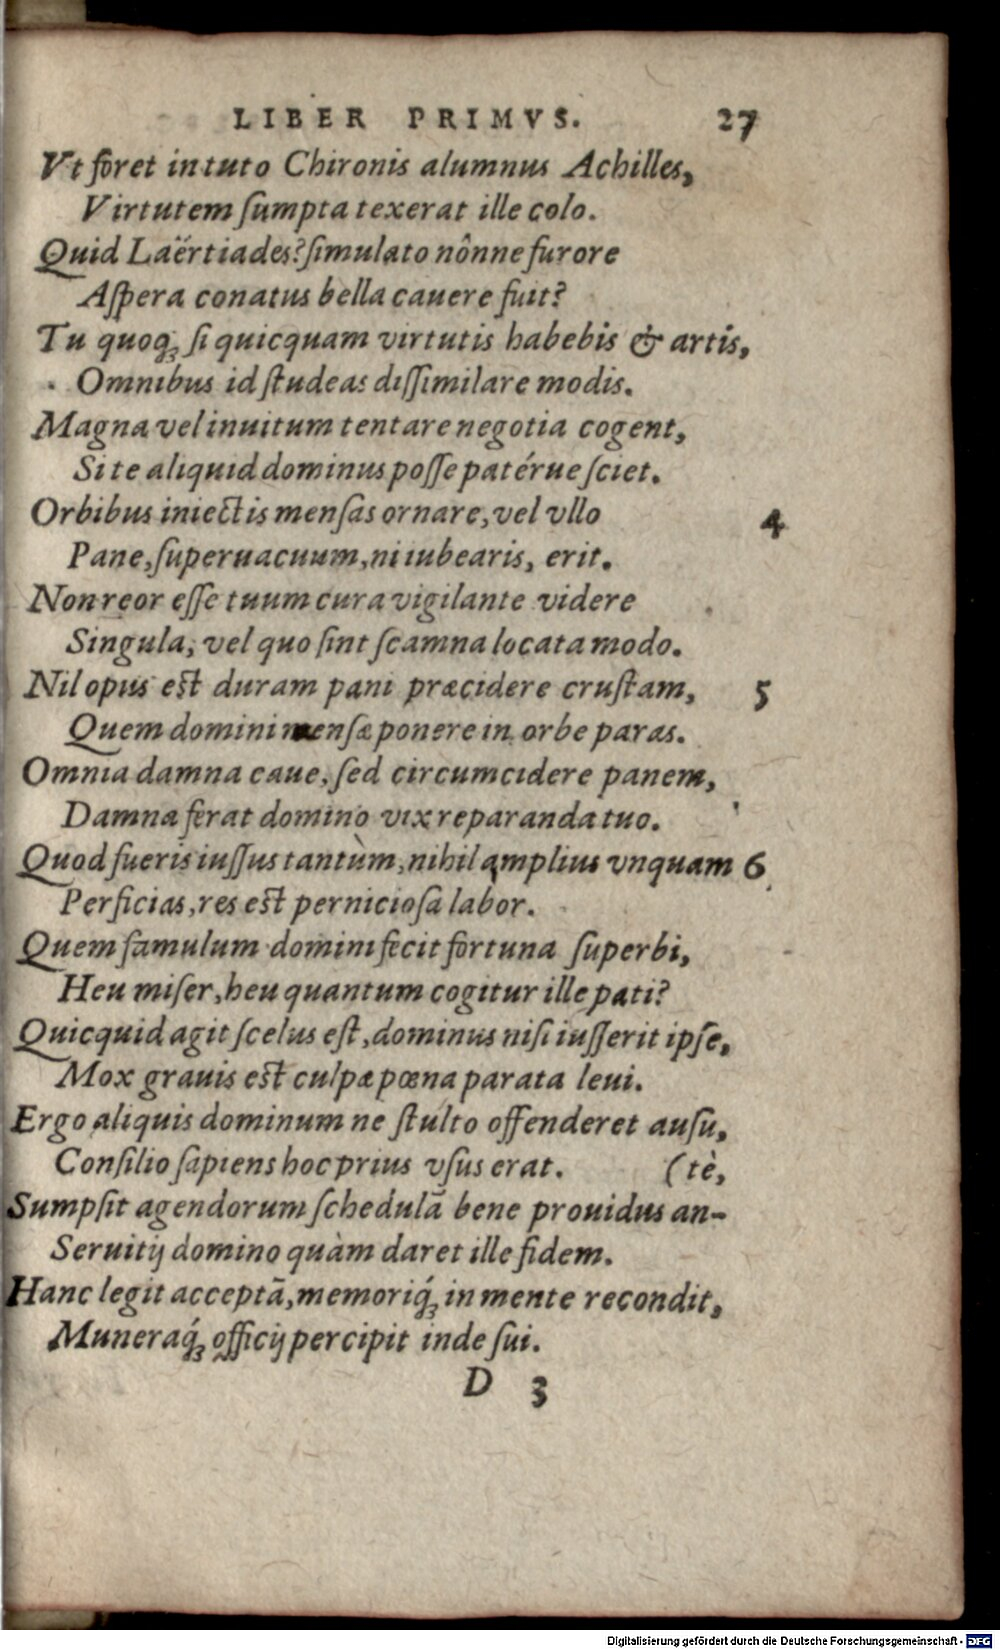 LIBER PRIMVS. 27
Vt foret in tuto Chironis alumnus Achilles,
Virtutem ſumpta texerat ille colo.
Quid Laërtiades? ſimulato nônne furore
Aſpera conatus bella cauere fuit?
Tu quoq; ſi quicquam virtutis habebis & artis,
Omnibus id ſtudeas diſſimilare modis.
Magna vel inuitum tentare negotia cogent,
Si te aliquid dominus poſſe patérue ſciet.
Orbibus iniectis menſas ornare, vel vllo 4
Pane, ſuperuacuum, ni iubearis, erit.
Non reor eſſe tuum cura vigilante videre
Singula, vel quo ſint ſcamna locata modo.
Nil opus eſt duram pani præcidere cruſtam, 5
Quem domini menſæ ponere in orbe paras.
Omnia damna caue, ſed circumcidere panem,
Damna ferat domino vix reparanda tuo.
Quod fueris iuſſus tantùm, nihil amplius vnquam 6
Perficias, res eſt pernicioſa labor.
Quem famulum domini fecit fortuna ſuperbi,
Heu miſer, heu quantum cogitur ille pati?
Quicquid agit ſcelus eſt, dominus niſi iuſſerit ipſe,
Mox grauis eſt culpæ pœna parata leui.
Ergo aliquis dominum ne ſtulto offenderet auſu,
Conſilio ſapiens hoc prius vſus erat. (tè,
Sumpſit agendorum ſchedulā bene prouidus an-
Seruitij domino quàm daret ille fidem.
Hanc legit acceptā, memoriq́; in mente recondit,
Muneraq́; officij percipit inde ſui.
D 3
Digitalisierung gefördert durch die Deutsche Forschungsgemeinschaft - DFG